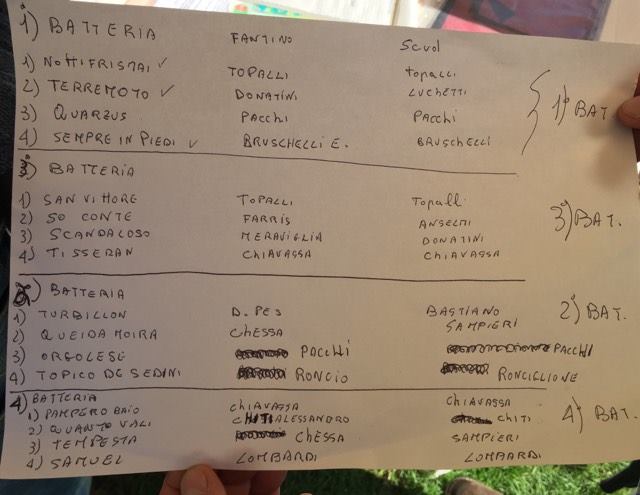 1) BATTERIA FANTINO SCUD
1) NOTTIFRISTAI ✓ TOPALLI TOPALLI 1) BAT.
2) TERREMOTO ✓ DONATINI LUCHETTI
3) QUARZUS PACCHI PACCHI
4) SEMPRE IN PIEDI ✓ BRUSCHELLI E. BRUSCHELLI
BATTERIA
1) SAN VITTORE TOPALLI TOPALLI 3) BAT.
2) SO CONTE FARRIS ANSELMI
3) SCANDALOSO MERAVIGLIA DONATINI
4) TISSERAN CHIAVASSA CHIAVASSA
BATTERIA
1) TURBILLON D. PES BASTIANO 2) BAT.
2) QUEIDA MOIRA CHESSA SAMPIERI
3) ORGOLESE PACCHI PACCHI
4) TOPICO DE SEDINI RONCIO RONCIGLIONE
4) BATTERIA
1) PAMPERO BAIO CHIAVASSA CHIAVASSA 4) BAT.
2) QUANTO VALI CHITI ALESSANDRO CHITI
3) TEMPESTA CHESSA SAMPIERI
4) SAMUEL LOMBARDI LOMBARDI